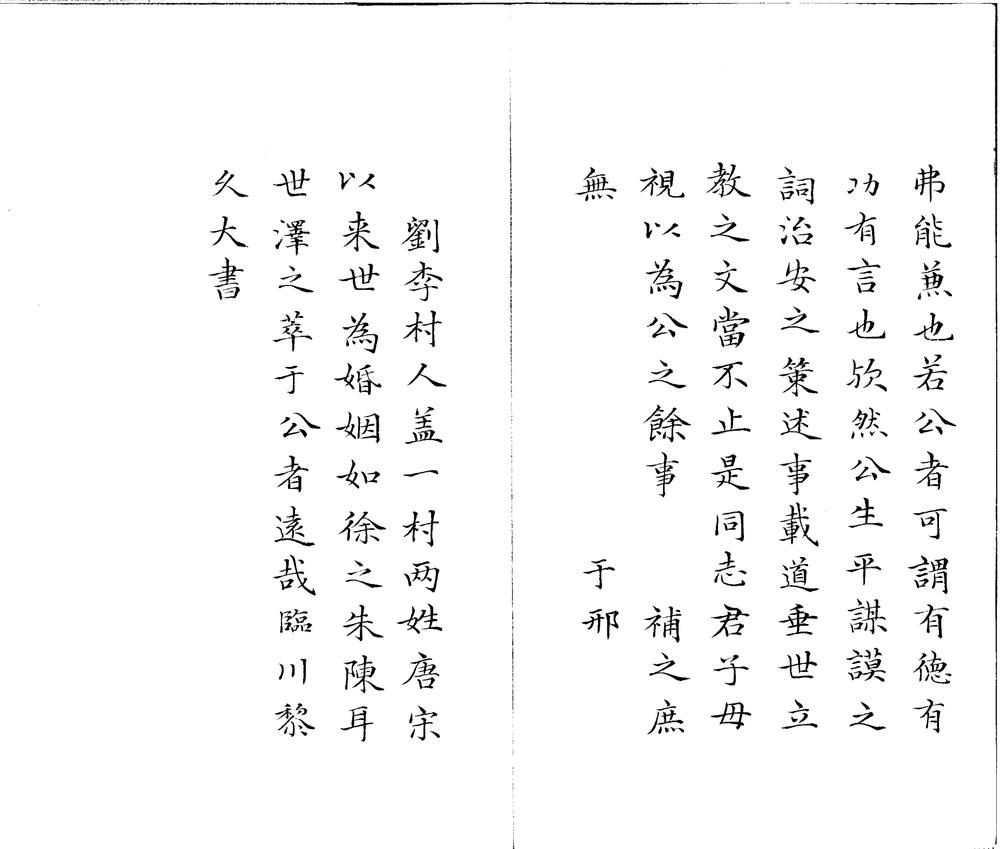 弗能兼也若公者可謂有徳有
功有言也歟然公生平謀謨之
詞治安之策述事載道垂世立
教之文當不止是同志君子毋
視以為公之餘事　　補之庶
無　　　　　　　于邢
劉李村人盖一村两姓唐宋
以来世為婚姻如徐之朱陳耳
世澤之萃于公者遠哉臨川黎
久大書